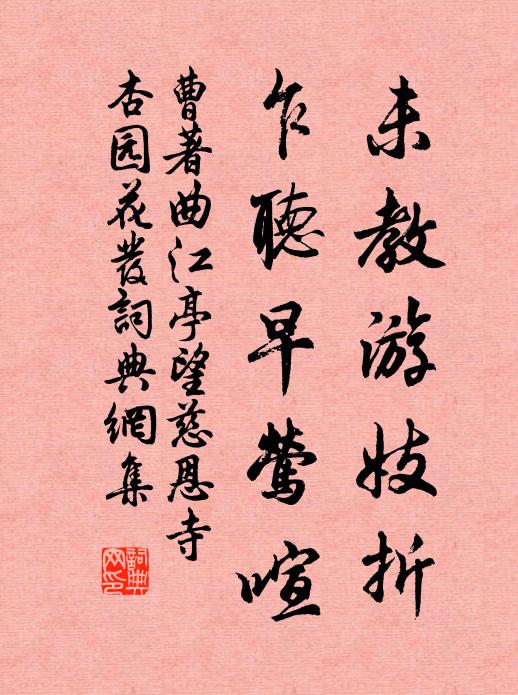 未教游妓折
乍聽早莺喧
曹著曲江亭望慈恩寺
杏园花發詞典網集
詞典网印